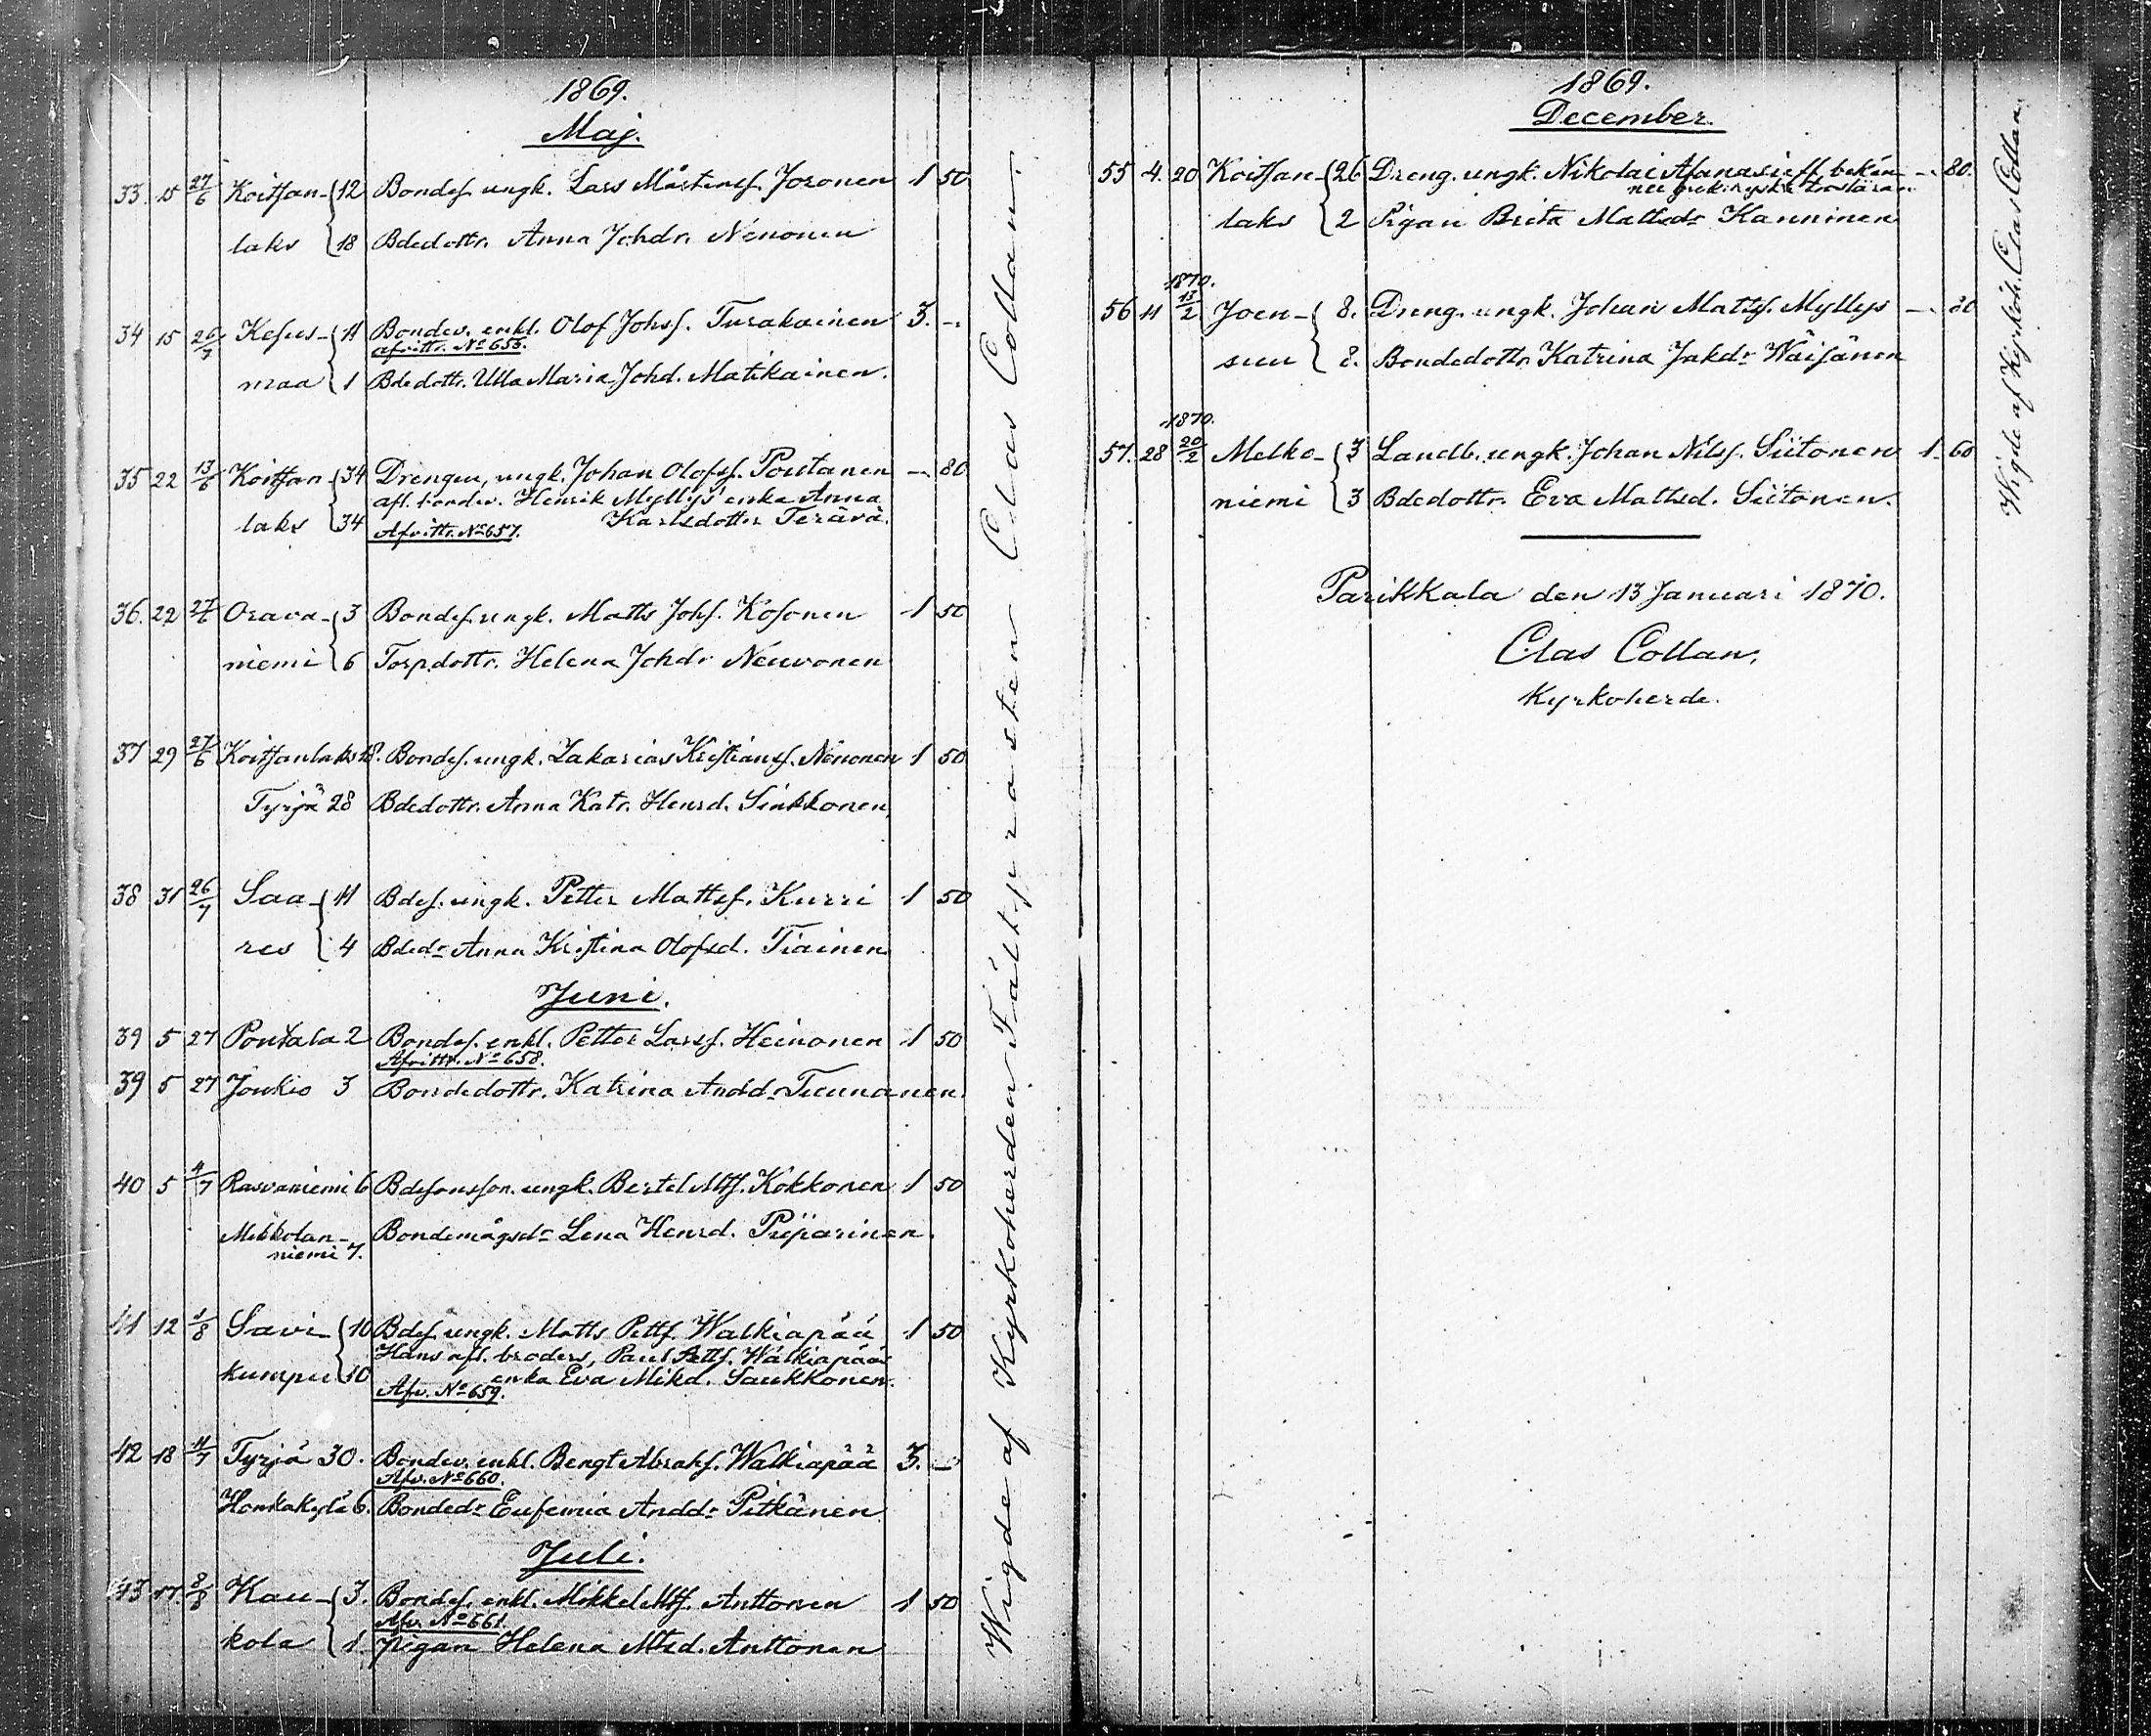 1869.
Maj.
33. 15 27/6 Koitsan- 12 Bondes. ungk. Lars Mårtens. Joronen 1 50
laks 18 Bdedottr. Anna Johdr. Nenonen
34 15 26/7 Kesus- 11 Bondev. enkl. Olof Johss. Turakainen 3. -.
afvittr. No 656.
maa 1 Bdedottr. Ulla Maria Johd. Matikainen.
35 22 13/6 Koitsan- 34 Drengen, ungk. Johan Olofss. Poutanen - 80
afl. bondev. Henrik Myllys' enka Anna
laks 34 Afvittr. No 657. Karlsdotter Terävä.
36. 22 27/6 Orava- 3 Bondes. ungk. Matts Johs. Kosonen 1 50
niemi 6 Torpdottr. Helena Johdr Neuvonen
37 29 27/6 Koitsanlaks 18. Bondes. ungk. Zakarias Kristians. Nenonen 1 50
Tyrjä 28 Bdedottr. Anna Katr. Hensd. Sinkkonen.
38 31 26/7 Saa- 11 Bdes. ungk. Petter Mattss. Kurri 1 50
res 4 Bdedr Anna Kristina Olofsd. Tiainen
Juni.
39 5 27 Poutala 2 Bondes. enkl. Petter Larss. Heinonen 1 50
Afvittr. No 658.
39 5 27 Joukio 3 Bondedottr. Katrina Anddr Teunanen
40 5 4/7 Rasvaniemi 6 Bdesonsson. ungk. Bertel Mtss. Kokkonen 1 50
Mikkolan- Bondemågsdr Lena Hensd. Pylparinen.
niemi 7.
41 12 1/8 Savi- 10 Bdes. ungk. Matts Petts. Walkiapää 1 50
Hans afl. broders, Paul Petts. Walkiapääs
kumpu 10 enka Eva Mikd. Saukkonen.
Afv. No 659.
42 18 11/7 Tyrjä 30. Bondev. enkl. Bengt Abrahs. Walkiapää 3. -
Afv. No 660.
Honkakylä 6. Bondedr Eufemia Anddr Pitkänen
Juli.
43 17. 8/8 Kau- 3. Bondes. enkl. Mikkel Mtss. Anttonen 1 50
Afv. No 661.
kola 1. Pigan Helena Mtsd. Anttonen
Wigde af Kyrkoherden Fältprosten Clas Collan.
1869.
December.
55 4. 20 Koitsan- 26 Dreng. ungk. Nikolai Afanasieff, bekän- -. 80.
ner grek. ryska trosläran.
laks 2 Pigan Brita Mattsdr Kanninen
1870.
56 11 13/2 Joen- 8. Dreng. ungk. Johan Mattss. Myllys -. 80
suu 8. Bondedottr. Katrina Jakdr Wäisänen
1870.
57. 28 20/2 Melko- 3 Landb. ungk. Johan Nilss. Siitonen 1. 60
niemi 3 Bdedottr. Eva Mattsd. Siitonen.
Parikkala den 13 Januari 1870.
Clas Collan,
Kyrkoherde.
Wigde af Kyrkoh. Clas Collan.